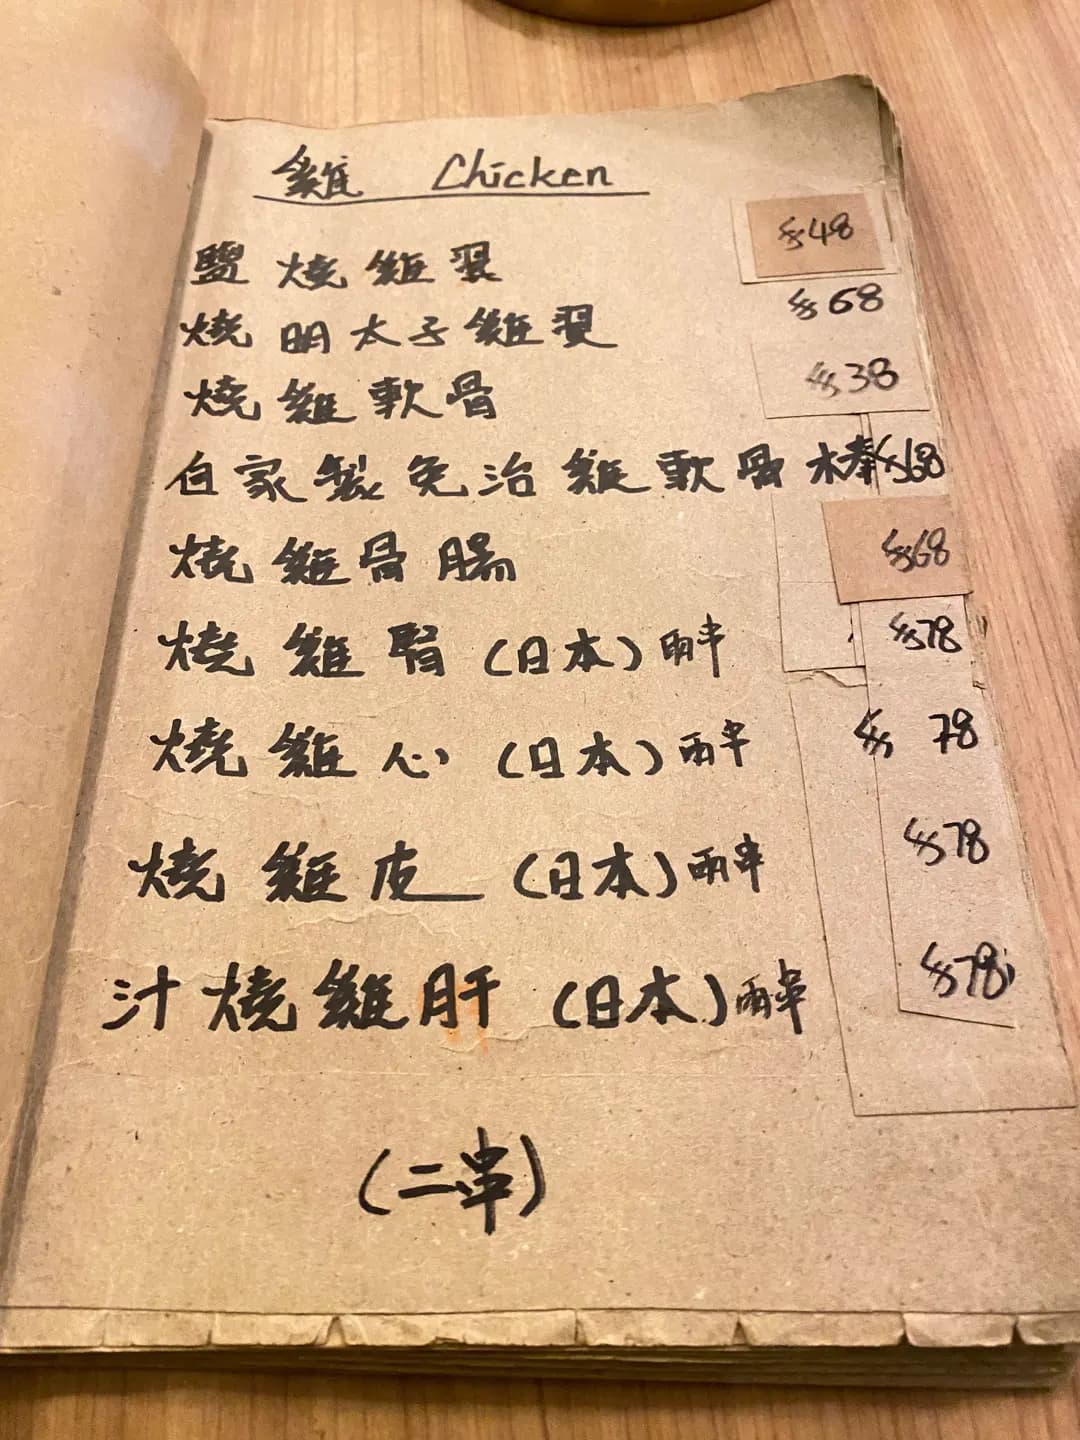 雞 Chicken
鹽燒雞翼 $48
燒明太子雞翼 $68
燒雞軟骨 $38
自家製免治雞軟骨棒 $68
燒雞骨腸 $68
燒雞腎(日本)兩串 $78
燒雞心(日本)兩串 $78
燒雞皮(日本)兩串 $78
汁燒雞肝(日本)兩串 $78
(二串)